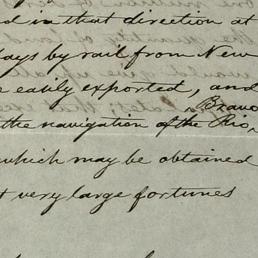 d in that direction at
days by rail from New
e easily exported, and
Bravo
the navigation of the Rio
which may be obtained
t very large fortunes